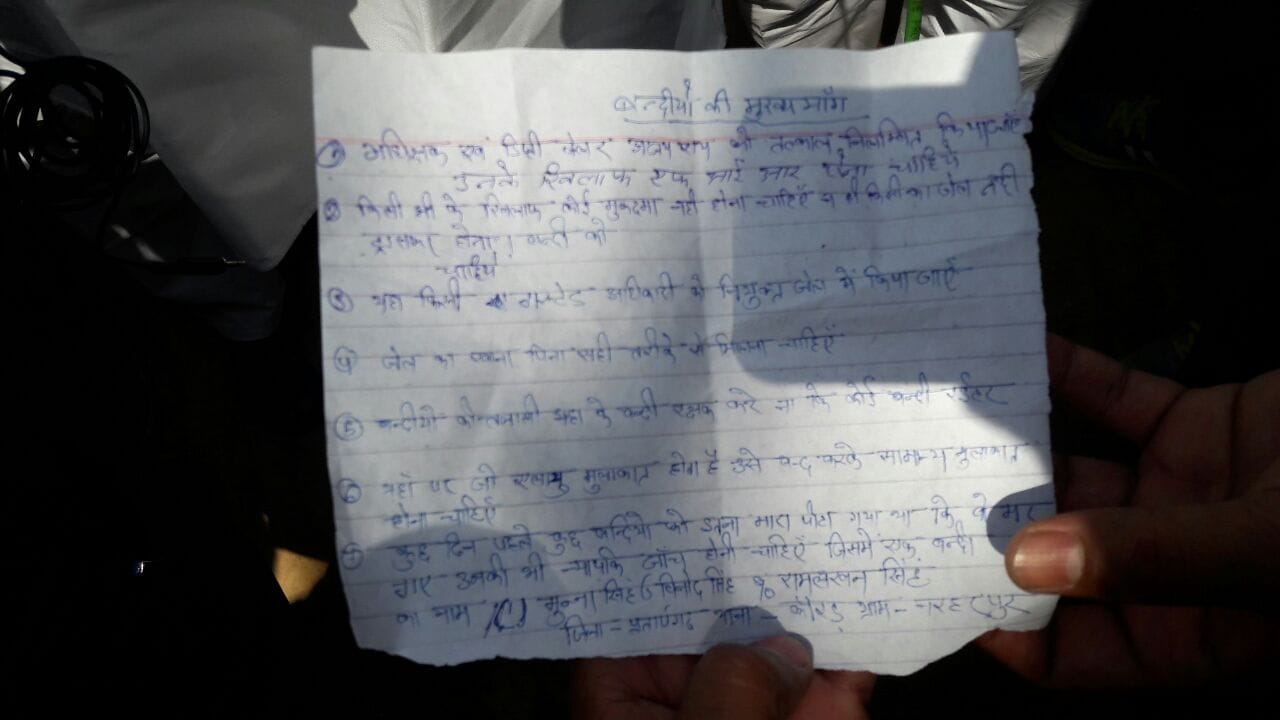 बन्दीयो की मुख्य माँग
① अधिक्षक एवं डिप्टी जेलर को तत्काल निलम्बित किया जाएँ
उनके खिलाफ एफ आई आर होना चाहिये
② किसी भी के खिलाफ कोई मुकदमा नही होना चाहिएँ न ही किसी का जेल नही
ट्रांसफर होना। बन्दी को
चाहिये
③ यहा किसी अधिकारी को नियुक्त जेल में किया जाएँ
④ जेल का खाना पिना सही तरीके से मिलना चाहिएँ
⑤ बन्दीयो की तलासी यहा के बन्दी रक्षक करे ना कि कोई बन्दी राईटर
⑥ यहाँ पर जो मुलाकात होता है उसे बन्द करके सामान्य मुलाकात
होना चाहिएँ
⑦ कुछ दिन पहले कुछ बन्दियो को इतना मारा पीटा गया था कि वे मर
गए उनकी भी न्यायिक जाँच होनी चाहिएँ जिसमें एक बन्दी
का नाम मुन्ना सिंह विनोद सिंह % रामलखन सिंह
जिला - प्रतापगढ़ थाना - ग्राम -